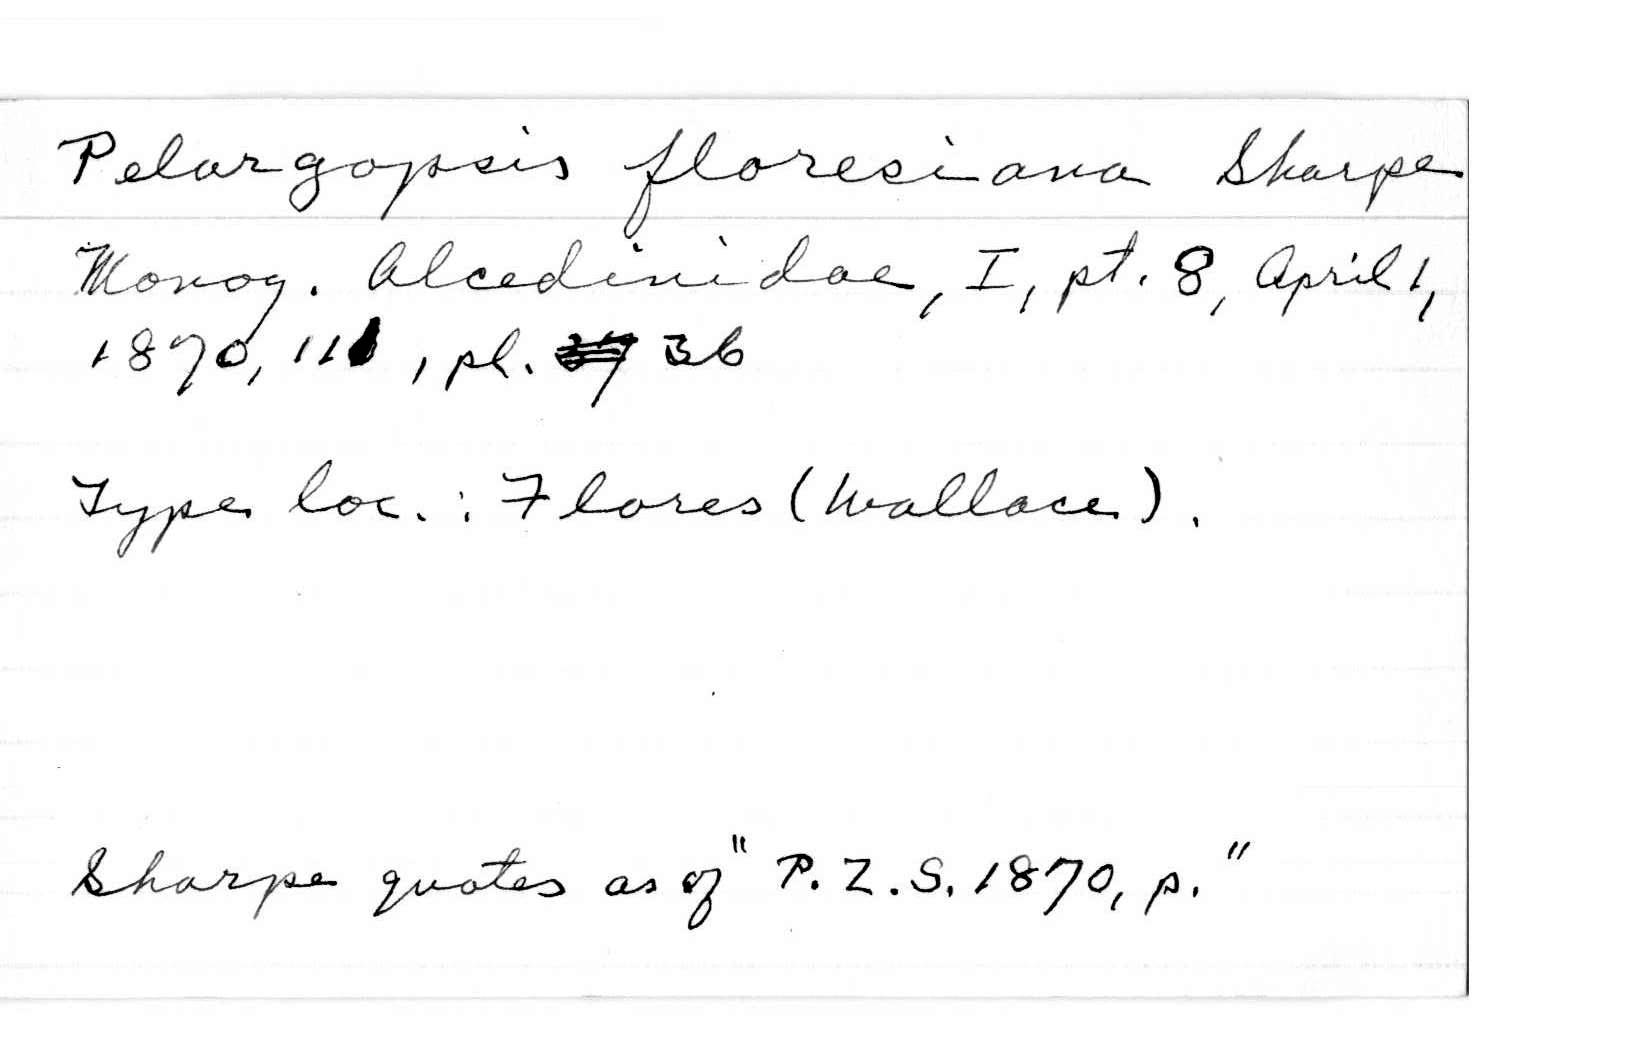 Pelargopsis floresiana Sharpe
Monog. Alcedinidae, I, pt. 8, April 1,
1870, 111, pl. 36
Type loc. : Flores (Wallace).
Sharpe quotes as of "P. Z. S. 1870, p."